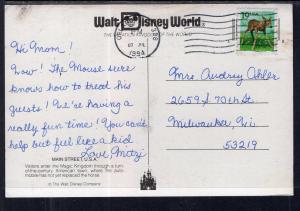 Walt Disney World®
THE VACATION KINGDOM OF THE WORLD
1994
19
USA
Hi Mom!
Wow! The Mouse sure
knows how to treat his
guests! We're having a
really fun time! You can't
help but feel like a kid
Love, Mitzi
Mrs Audrey Ohler
2659 N 70th St.
Milwaukee, Wi
53219
MAIN STREET, U.S.A.
Visitors enter the Magic Kingdom through a turn-
of-the-century American town, where the auto-
mobile has not yet replaced the horse.
© The Walt Disney Company